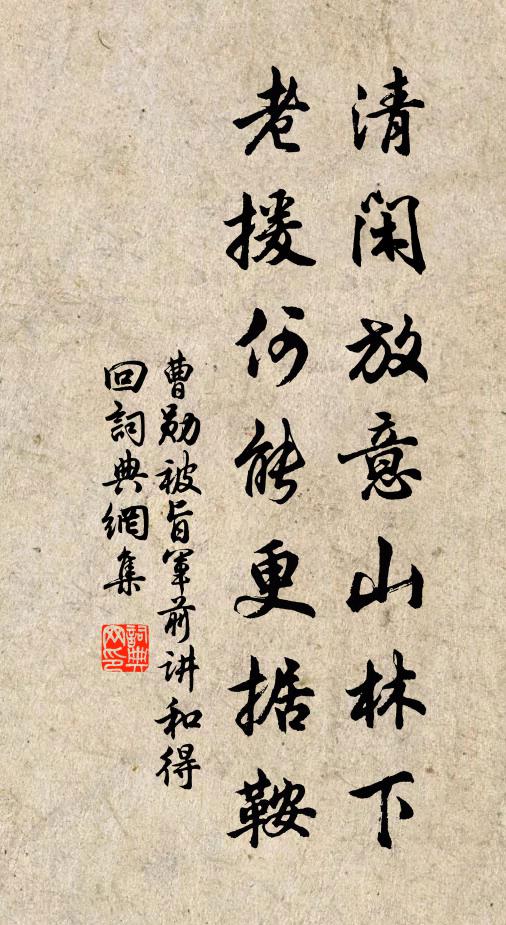 清閑放意山林下
老援何能更据鞍
曹勛被旨軍前讲和得
回詞典網集
詞典网印